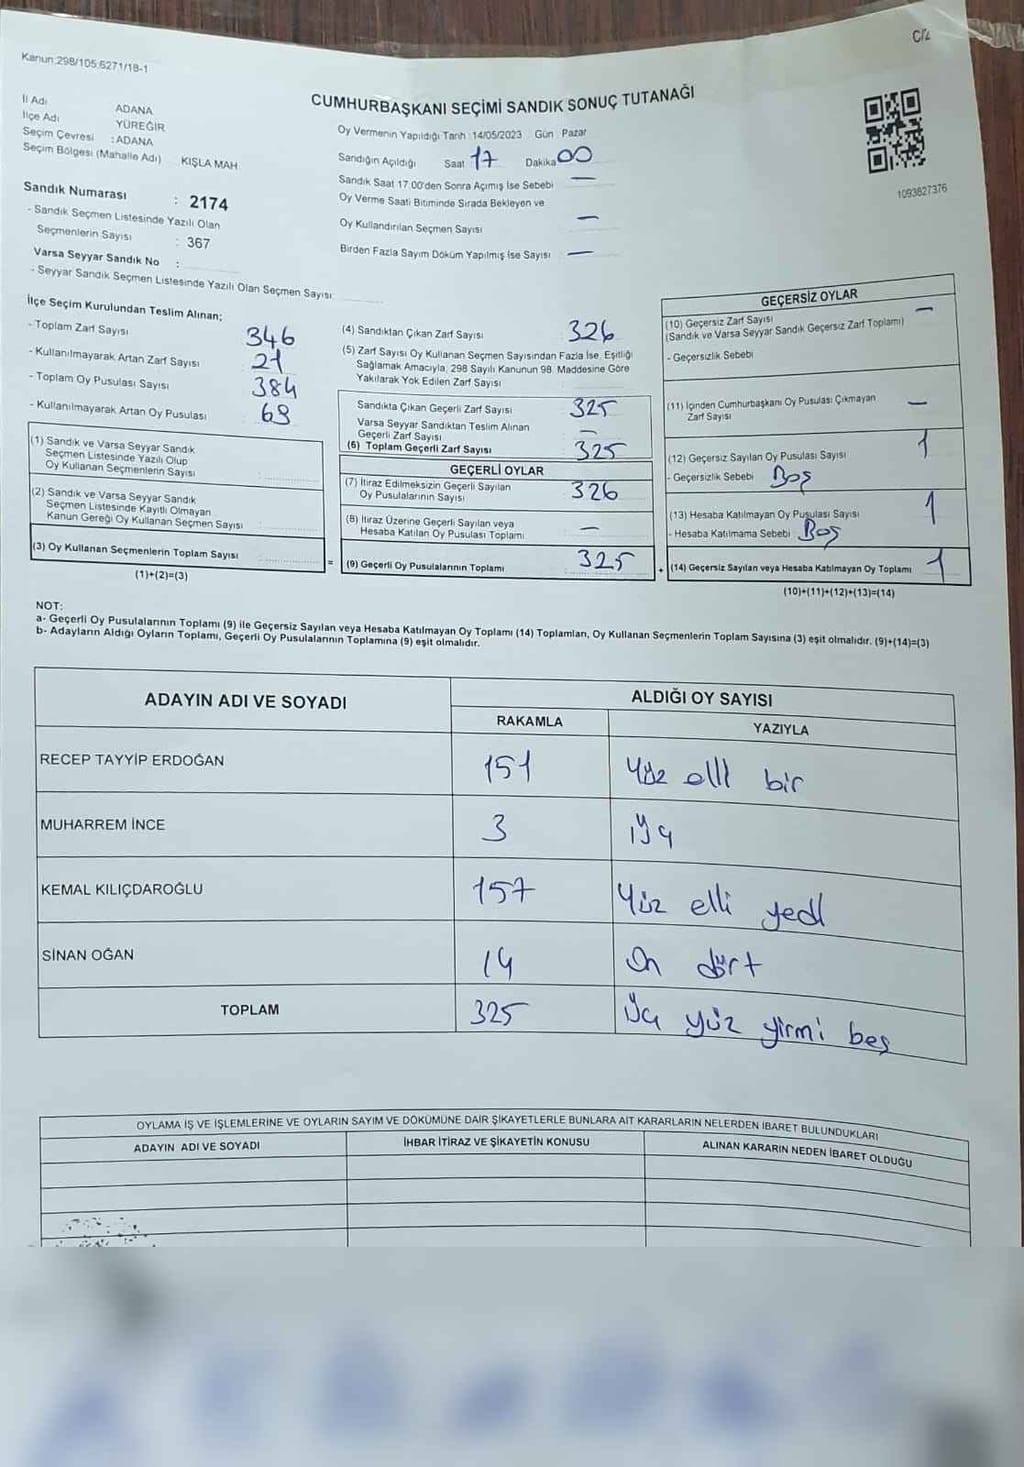 C12
Kanun:298/105:6271/18-1
CUMHURBAŞKANI SEÇİMİ SANDIK SONUÇ TUTANAĞI
İl Adı ADANA
İlçe Adı YÜREĞİR
Seçim Çevresi :ADANA
Seçim Bölgesi (Mahalle Adı) KIŞLA MAH
Sandık Numarası : 2174
- Sandık Seçmen Listesinde Yazılı Olan
Seçmenlerin Sayısı : 367
Varsa Seyyar Sandık No :
- Seyyar Sandık Seçmen Listesinde Yazılı Olan Seçmen Sayısı:
Oy Vermenin Yapıldığı Tarih :14/05/2023 Gün : Pazar
Sandığın Açıldığı Saat 17 Dakika 00
Sandık Saat 17:00'den Sonra Açımış İse Sebebi —
Oy Verme Saati Bitiminde Sırada Bekleyen ve
Oy Kullandırılan Seçmen Sayısı —
Birden Fazla Sayım Döküm Yapılmış İse Sayısı —
1093827376
İlçe Seçim Kurulundan Teslim Alınan;
- Toplam Zarf Sayısı 346
- Kullanılmayarak Artan Zarf Sayısı 21
- Toplam Oy Pusulası Sayısı 384
- Kullanılmayarak Artan Oy Pusulası 68
(1) Sandık ve Varsa Seyyar Sandık
Seçmen Listesinde Yazılı Olup
Oy Kullanan Seçmenlerin Sayısı
(2) Sandık ve Varsa Seyyar Sandık
Seçmen Listesinde Kayıtlı Olmayan
Kanun Gereği Oy Kullanan Seçmen Sayısı
(3) Oy Kullanan Seçmenlerin Toplam Sayısı
(1)+(2)=(3)
=
(4) Sandıktan Çıkan Zarf Sayısı 326
(5) Zarf Sayısı Oy Kullanan Seçmen Sayısından Fazla İse, Eşitliği
Sağlamak Amacıyla, 298 Sayılı Kanunun 98. Maddesine Göre
Yakılarak Yok Edilen Zarf Sayısı
Sandıkta Çıkan Geçerli Zarf Sayısı 325
Varsa Seyyar Sandıktan Teslim Alınan
Geçerli Zarf Sayısı —
(6) Toplam Geçerli Zarf Sayısı 325
GEÇERLİ OYLAR
(7) İtiraz Edilmeksizin Geçerli Sayılan
Oy Pusulalarının Sayısı 326
(8) İtiraz Üzerine Geçerli Sayılan veya
Hesaba Katılan Oy Pusulası Toplamı —
(9) Geçerli Oy Pusulalarının Toplamı 325
+
GEÇERSİZ OYLAR
(10) Geçersiz Zarf Sayısı —
(Sandık ve Varsa Seyyar Sandık Geçersiz Zarf Toplamı)
- Geçersizlik Sebebi
(11) İçinden Cumhurbaşkanı Oy Pusulası Çıkmayan
Zarf Sayısı —
(12) Geçersiz Sayılan Oy Pusulası Sayısı 1
- Geçersizlik Sebebi Boş
(13) Hesaba Katılmayan Oy Pusulası Sayısı 1
- Hesaba Katılmama Sebebi Boş
(14) Geçersiz Sayılan veya Hesaba Katılmayan Oy Toplamı 1
(10)+(11)+(12)+(13)=(14)
NOT:
a- Geçerli Oy Pusulalarının Toplamı (9) ile Geçersiz Sayılan veya Hesaba Katılmayan Oy Toplamı (14) Toplamları, Oy Kullanan Seçmenlerin Toplam Sayısına (3) eşit olmalıdır. (9)+(14)=(3)
b- Adayların Aldığı Oyların Toplamı, Geçerli Oy Pusulalarının Toplamına (9) eşit olmalıdır.
ADAYIN ADI VE SOYADI ALDIĞI OY SAYISI
RAKAMLA YAZIYLA
RECEP TAYYİP ERDOĞAN 151 Yüz elli bir
MUHARREM İNCE 3 üç
KEMAL KILIÇDAROĞLU 157 Yüz elli yedi
SİNAN OĞAN 14 On dört
TOPLAM 325 Üç yüz yirmi beş
OYLAMA İŞ VE İŞLEMLERİNE VE OYLARIN SAYIM VE DÖKÜMÜNE DAİR ŞİKAYETLERLE BUNLARA AİT KARARLARIN NELERDEN İBARET BULUNDUKLARI
ADAYIN ADI VE SOYADI İHBAR İTİRAZ VE ŞİKAYETİN KONUSU ALINAN KARARIN NEDEN İBARET OLDUĞU